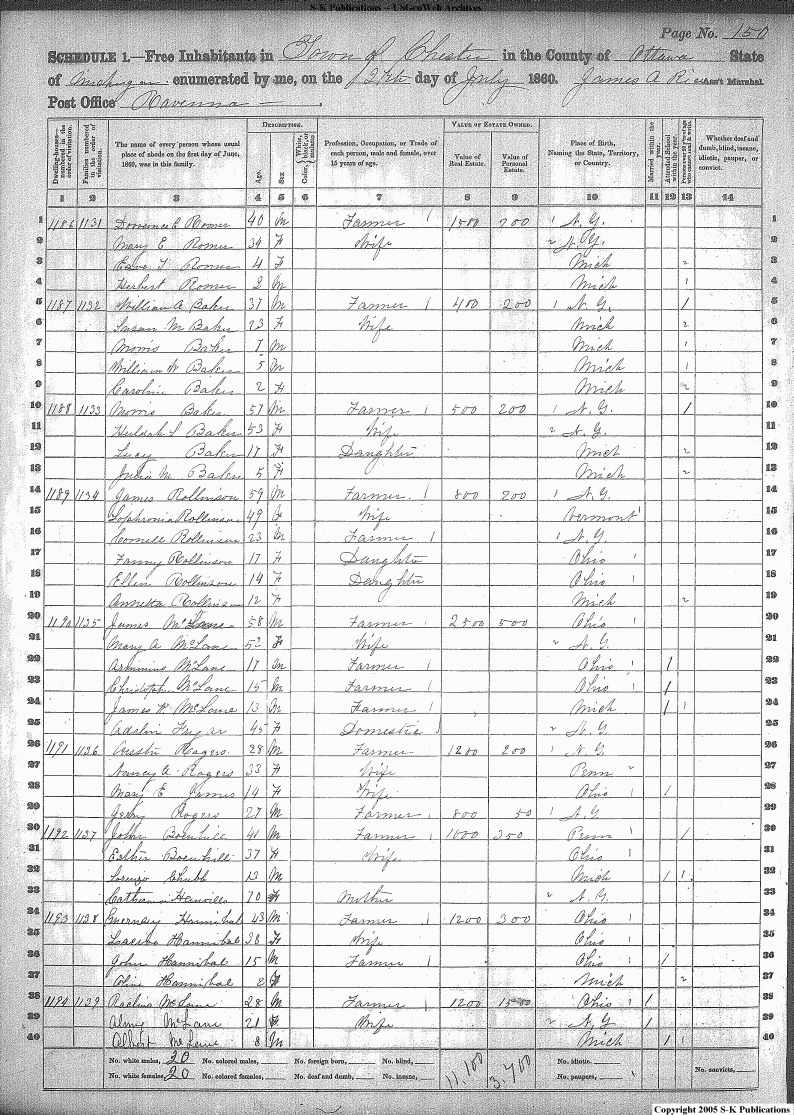 S-K Publications – USGenWeb Archives
Page No. 150
SCHEDULE 1.—Free Inhabitants in Town of Chester in the County of Ottawa State
of Michigan enumerated by me, on the 12th day of July 1860. James A Rice Ass't Marshal
Post Office Ravenna
Dwelling-houses—numbered in the order of visitation.
Families numbered in the order of visitation.
The name of every person whose usual place of abode on the first day of June, 1860, was in this family.
DESCRIPTION.
Age.
Sex
Color, { White, black, or mulatto
Profession, Occupation, or Trade of each person, male and female, over 15 years of age.
VALUE OF ESTATE OWNED.
Value of Real Estate.
Value of Personal Estate.
Place of Birth, Naming the State, Territory, or Country.
Married within the year.
Attended School within the year.
Persons over 20 y'rs of age who cannot read & write.
Whether deaf and dumb, blind, insane, idiotic, pauper, or convict.
1 2 3 4 5 6 7 8 9 10 11 12 13 14
1 1186 1131 Romer 40 M Farmer 1 1500 700 1 N.Y. 1
2 Mary E Romer 39 F Wife 2 N.Y. 2
3 Romer 4 F Mich 2 3
4 Herbert Romer 2 M Mich 1 4
5 1187 1132 William A Baker 31 M Farmer 1 400 200 1 N.Y. 1 5
6 Susan M Baker 23 F Wife Mich 2 6
7 Morris Baker 7 M Mich 1 7
8 William W Baker 5 M Mich 1 8
9 Caroline Baker 2 F Mich 2 9
10 1188 1133 Morris Baker 57 M Farmer 1 500 200 1 N.Y. 1 10
11 Huldah S Baker 53 F Wife 2 N.Y. 11
12 Lucy Baker 17 F Daughter Mich 2 12
13 Julia M Baker 5 F Mich 2 13
14 1189 1134 James Rollinson 59 M Farmer 1 800 200 1 N.Y. 14
15 Sophronia Rollinson 49 F Wife Vermont 15
16 Cornell Rollinson 23 M Farmer 1 1 N.Y. 16
17 Fanny Rollinson 17 F Daughter Ohio 1 17
18 Ellen Rollinson 14 F Daughter Ohio 1 18
19 Annetta Rollinson 12 F Mich 2 19
20 1190 1135 James McLane 58 M Farmer 1 2500 500 Ohio 1 20
21 Mary A McLane 52 F Wife 2 N.Y. 21
22 McLane 17 M Farmer 1 Ohio 1 1 22
23 Christopher McLane 15 M Farmer 1 Ohio 1 1 23
24 James W McLane 13 M Farmer 1 Mich 1 1 24
25 45 F Domestic 2 N.Y. 25
26 1191 1136 Austin Rogers 28 M Farmer 1200 200 1 N.Y. 26
27 Nancy A Rogers 33 F Wife Penn 2 27
28 Mary E James 14 F Wife Ohio 1 1 28
29 Jerry Rogers 27 M Farmer 1 800 50 1 N.Y. 29
30 1192 1137 John 41 M Farmer 1 1000 350 Penn 1 1 30
31 Esther 37 F Wife Ohio 1 31
32 Lorenzo Chubb 13 M Mich 1 1 32
33 70 F Mother 2 N.Y. 33
34 1193 1138 Guernsey Hannibal 43 M Farmer 1 1200 300 Ohio 1 34
35 Hannibal 38 F Wife Ohio 1 35
36 John Hannibal 15 M Farmer 1 Ohio 1 1 36
37 Olive Hannibal 2 F Mich 2 37
38 1194 1139 McLane 28 M Farmer 1 1200 1500 Ohio 1 1 38
39 Almy McLane 21 F Wife 2 N.Y. 1 39
40 Albert McLane 8 M Mich 1 1 40
No. white males, 20 No. colored males, No. foreign born, No. blind, 11,100 3,700 No. idiotic.
No. white females, 20 No. colored females, No. deaf and dumb, No. insane, No. paupers, No. convicts,
Copyright 2005 S-K Publications